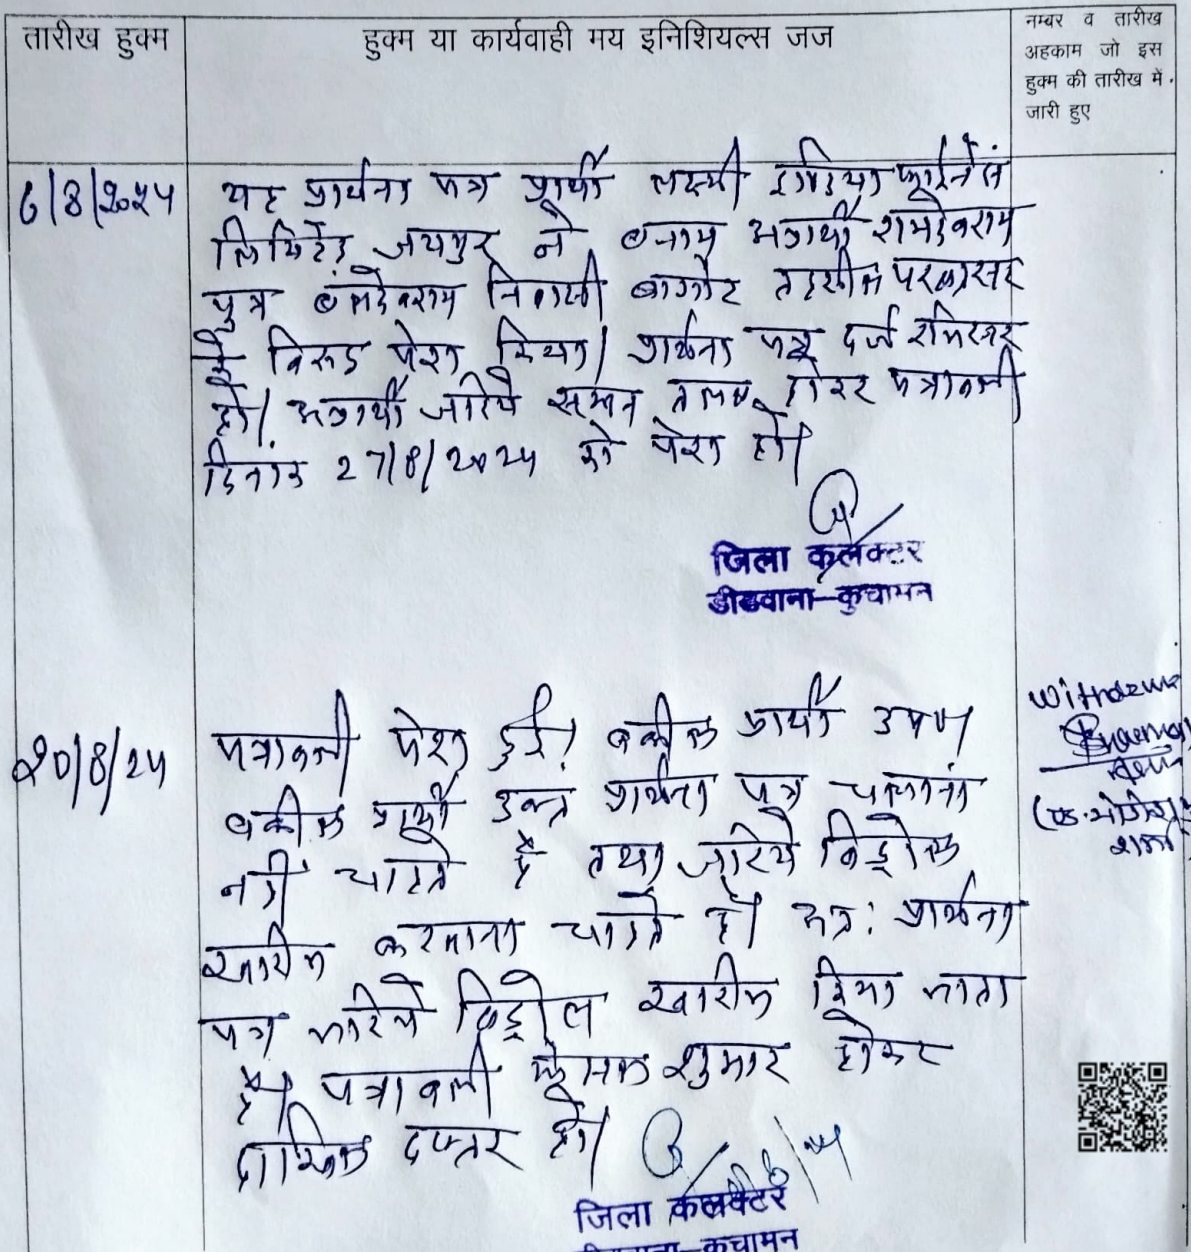 तारीख हुक्म
हुक्म या कार्यवाही मय इनिशियल्स जज
नम्बर व तारीख
अहकाम जो इस
हुक्म की तारीख में
जारी हुए
6/8/2024
यह प्रार्थना पत्र प्रार्थी लक्ष्मी इण्डिया फाईनेंस
लिमिटेड जयपुर ने बनाम अप्रार्थी रामदेवराम
पुत्र बलदेवराम निवासी बागोट तहसील परबतसर
के विरुद्ध पेश किया। प्रार्थना पत्र दर्ज रजिस्टर
हो। अप्रार्थी जरिये समन तलब होकर पत्रावली
दिनांक 27/8/2024 को पेश हो।
जिला कलक्टर
डीडवाना-कुचामन
20/8/24
पत्रावली पेश हुई। वकील प्रार्थी उप०।
वकील प्रार्थी उक्त प्रार्थना पत्र चलाना
नहीं चाहते है तथा जरिये विड्रोल
खारीज करवाना चाहते है। अत: प्रार्थना
पत्र जरिये विड्रोल खारीज किया जाता
है। पत्रावली फैसल शुमार होकर
दाखिल दफ्तर हो।
जिला कलक्टर
डीडवाना-कुचामन
शर्मा